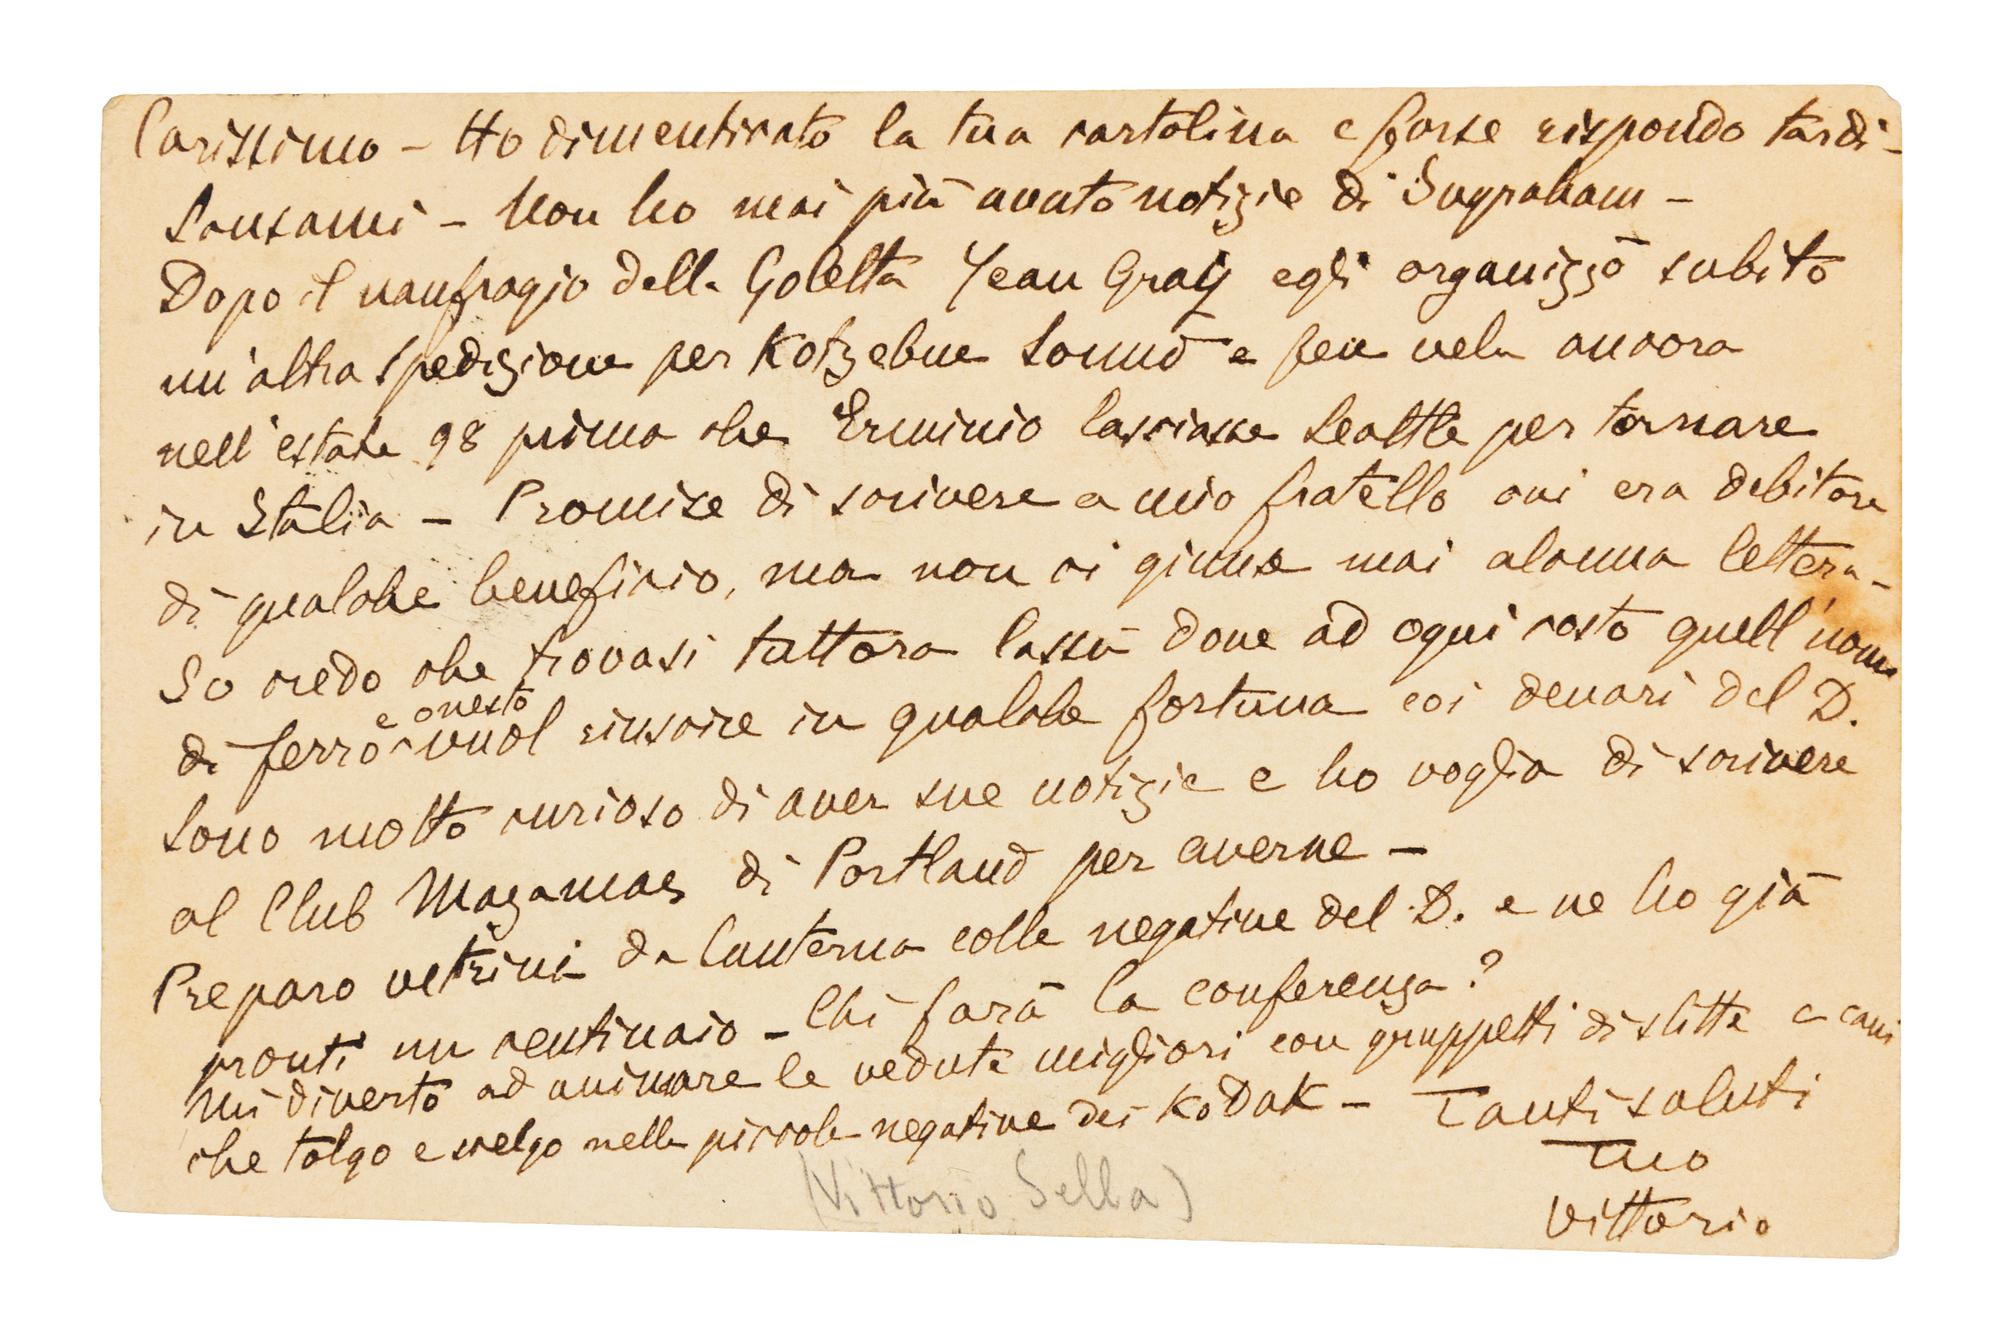 Carissimo – Ho dimenticato la tua cartolina e forse rispondo tardi –
Scusami – Non ho mai più avuto notizie di Ingraham –
Dopo il naufragio della Goletta Jean Gray egli organizzò subito
un'altra spedizione per Kotzebue Sound e fece vela ancora
nell'estate 98 prima che Erminio lasciasse Seattle per tornare
in Italia – Promise di scrivere a mio fratello cui era debitore
di qualche beneficio, ma non ci giunse mai alcuna lettera –
Io credo che trovasi tuttora lassù dove ad ogni costo quell'uomo
di ferro e onesto vuol riuscire in qualche fortuna coi denari del D.
Sono molto curioso di aver sue notizie e ho voglia di scrivere
al Club Mazamas di Portland per averne –
Preparo vetrini da lanterna colle negative del D. e ne ho già
pronti un centinaio – Chi farà la conferenza?
Mi diverto ad animare le vedute migliori con gruppetti di slitte e cani
che tolgo e scelgo nelle piccole negative dei Kodak – Tanti saluti
Tuo
Vittorio
(Vittorio Sella)